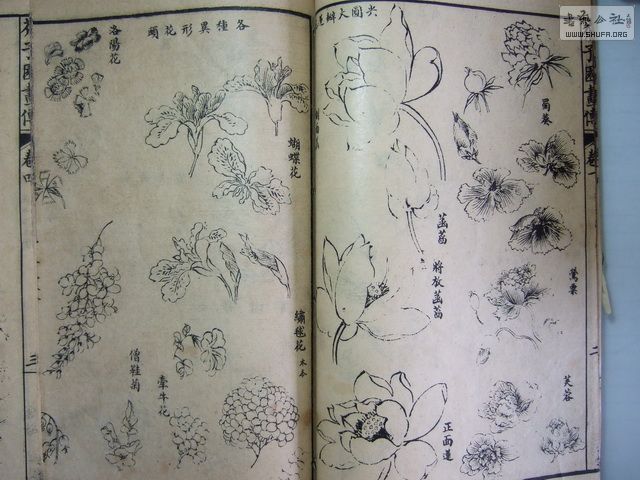 尖圓大瓣蓮
蜀葵
鶯粟
芙蓉
菡萏
將放菡萏
正面蓮
二
各種異形花頭
蝴蝶花
繡毬花 木本
洛陽花
牽牛花
僧鞋菊
子園畫傳
卷四
三
公社
WWW.SHUFA.ORG